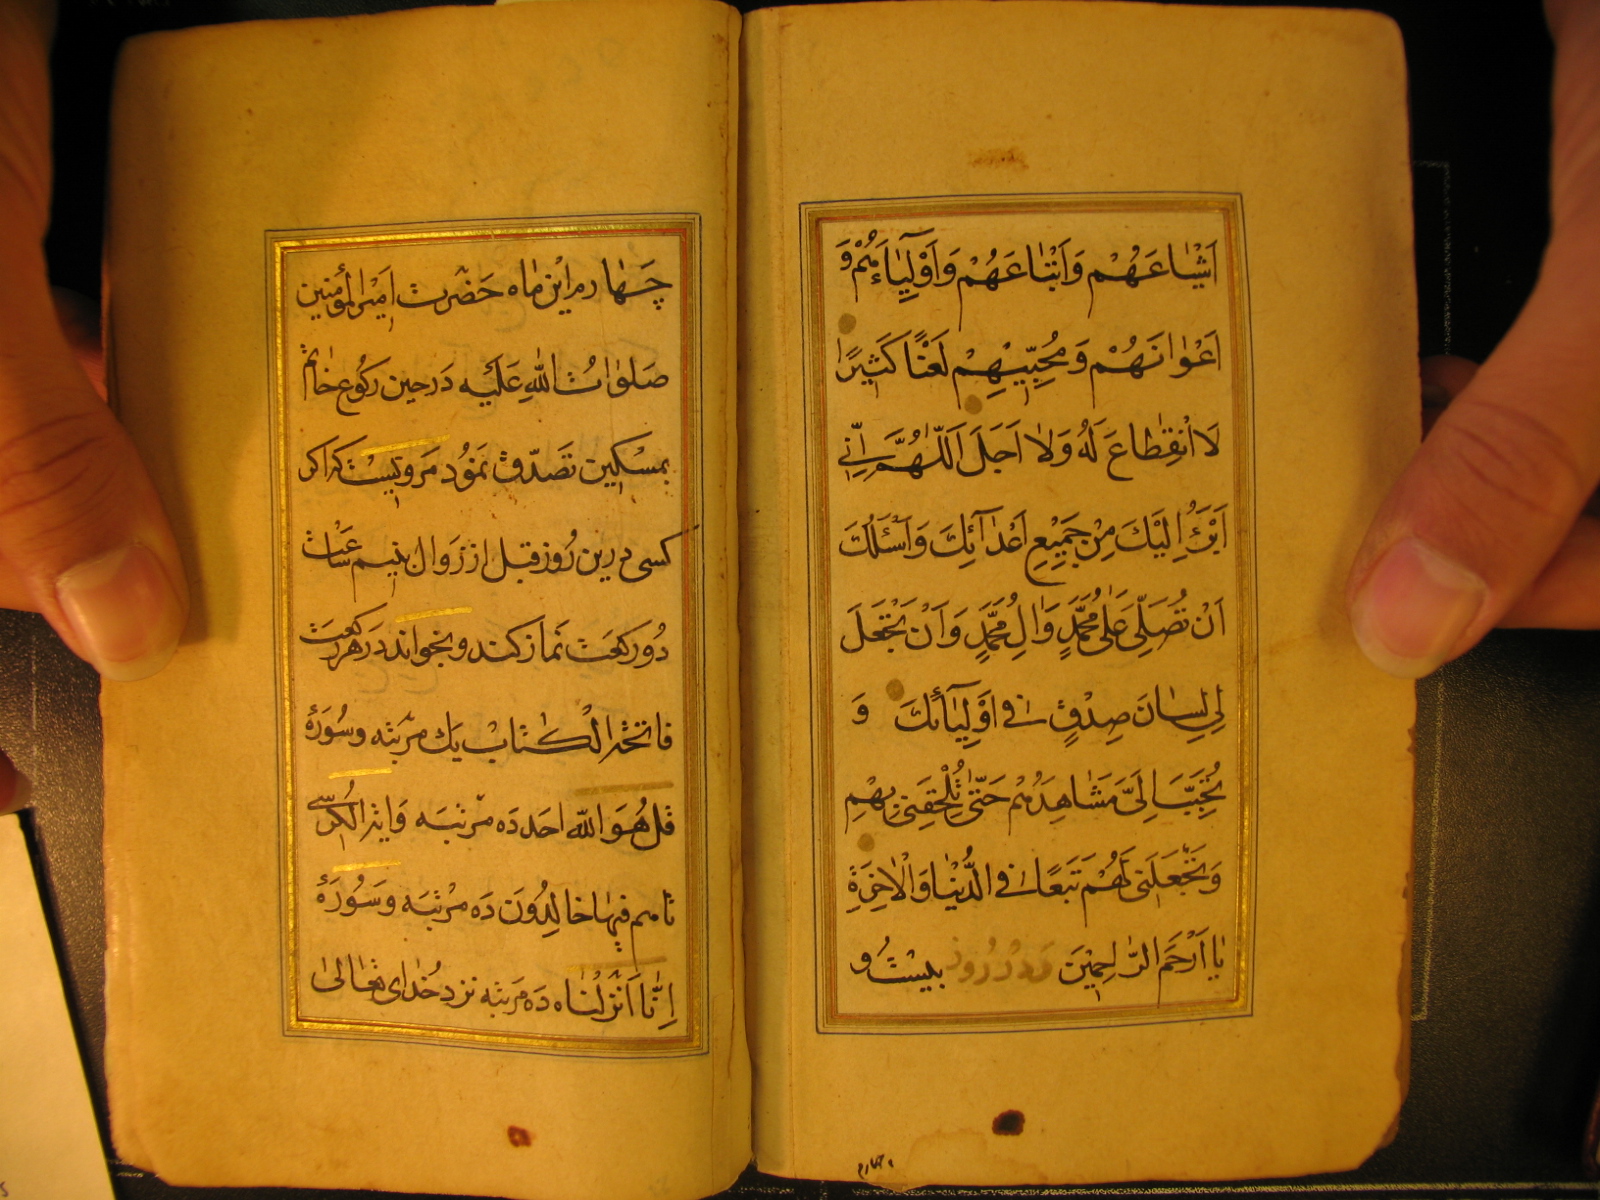 اَشْيٰاعَهُمْ وَاَتْبٰاعَهُمْ وَاَوْلِيٰآءَهُمْ وَ
اَعْوٰانَهُمْ وَمُحِبّيهِمْ لَعْنًا كَثيرًا
لَا انْقِطٰاعَ لَهُ وَلٰا اَجَلَ اَللّٰهُمَّ اِنّي
اَبْرَءُ اِلَيْكَ مِنْ جَميعِ اَعْدٰآئِكَ وَاَسْئَلُكَ
اَنْ تُصَلِّىَ عَلٰى مُحَمَّدٍ وَاٰلِ مُحَمَّدٍ وَاَنْ تَجْعَلَ
لي لِسٰانَ صِدْقٍ في اَوْلِيٰائِكَ وَ
تُحَبِّبَ اِلَىَّ مَشٰاهِدَهُمْ حَتّٰى تُلْحِقَني بِهِمْ
وَتَجْعَلَني لَهُمْ تَبَعًا في الدُّنْيٰا وَالْاٰخِرَةِ
يٰا اَرْحَمَ الرّٰاحِمينَ در روز بيست و
چهارم
چَهٰارم اين مٰاه حَضْرت اَميرالمؤمنين
صَلَوٰاتُ اللّٰهِ عَلَيْه دَرحين ركُوع خٰاتم
بمسكين تصَدّق نمُود مَرويست كه اكر
كسى درين رُوز قبل از زوال بنيم سٰاعت
دُو ركعت نَماز كند و بخواند دَر هر ركعت
فاتحة الكتٰاب يك مرتبه وسُورَهٔ
قل هُوَ اللّٰه احَد دَه مرتبَه وَاية الكُرسى
تا هم فيهٰا خٰالِدُونَ دَه مرْتبَه وَسُورَهٔ
اِنّٰا اَنْزَلْنٰاه دَه مَرتبه نزد خُداى تعٰالىٰ